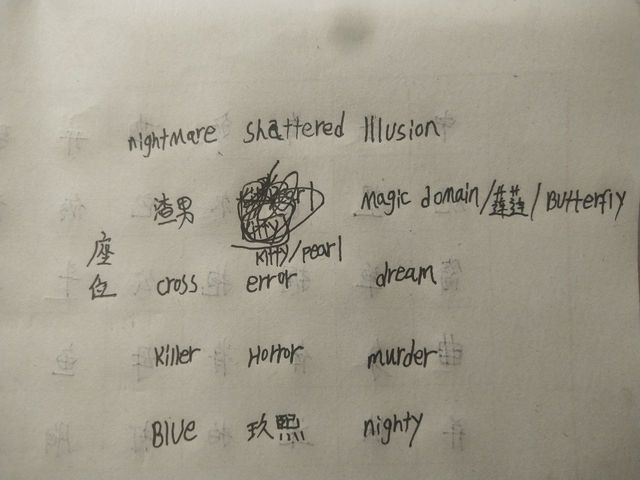 nightmare shattered Illusion
渣男 magic domain/蓮蓮/Butterfly
Kitty/pearl
座
cross error dream
Killer Horror murder
Blue 玖熙 nighty